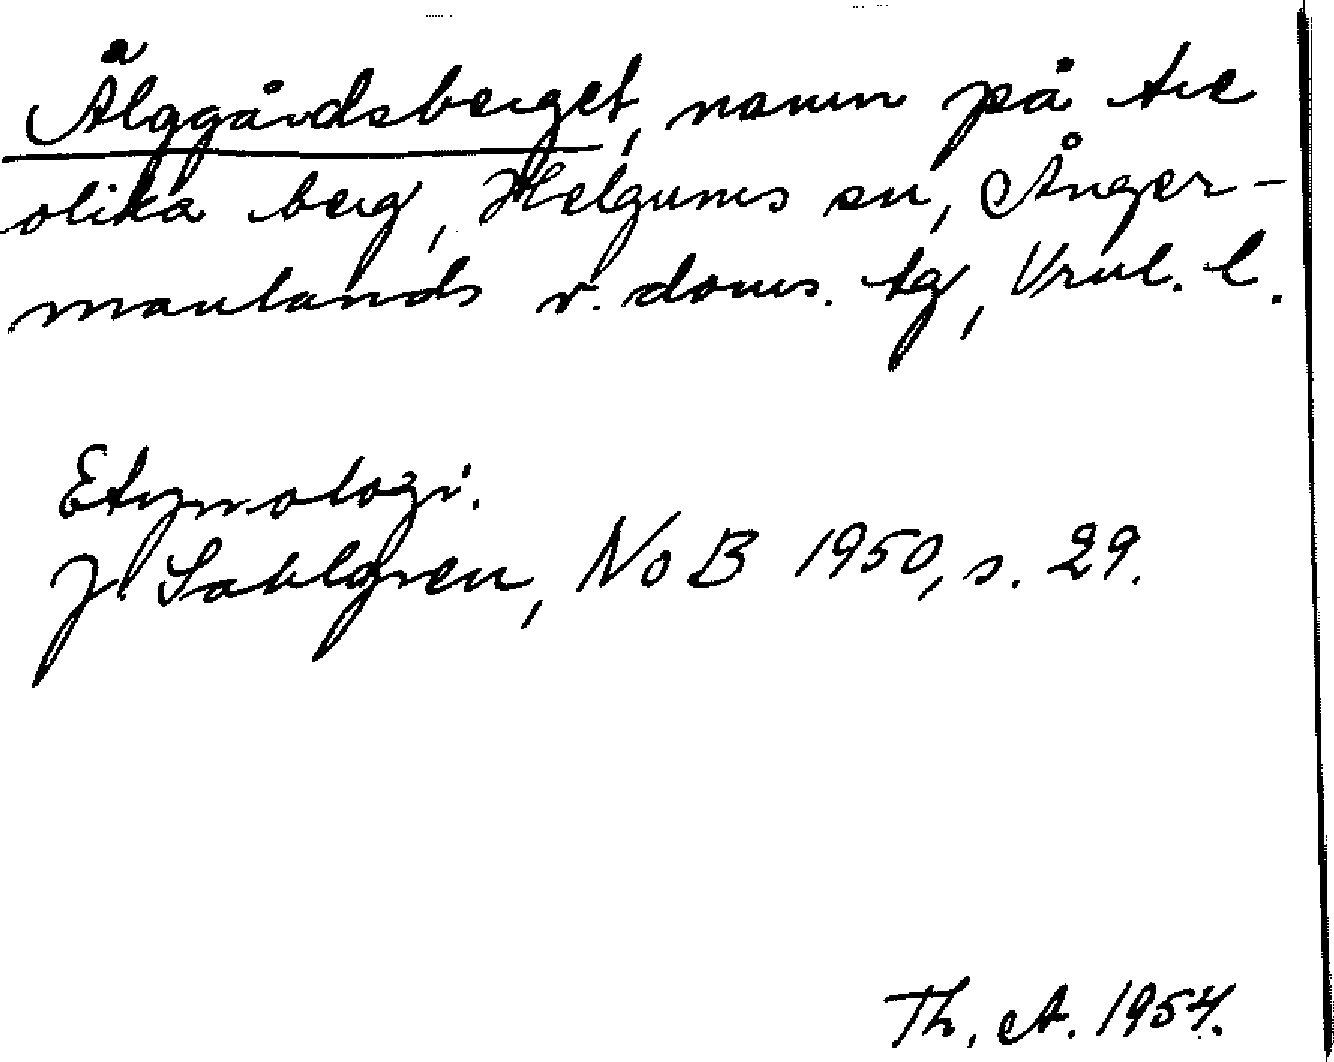 Älggårdsberget, namn på tre
olika berg, Helgums sn, Ånger-
manlands v. doms. tg, Vrnl. l.
Etymologi.
J. Sahlgren, NoB 1950, s. 29.
Th. A. 1954.